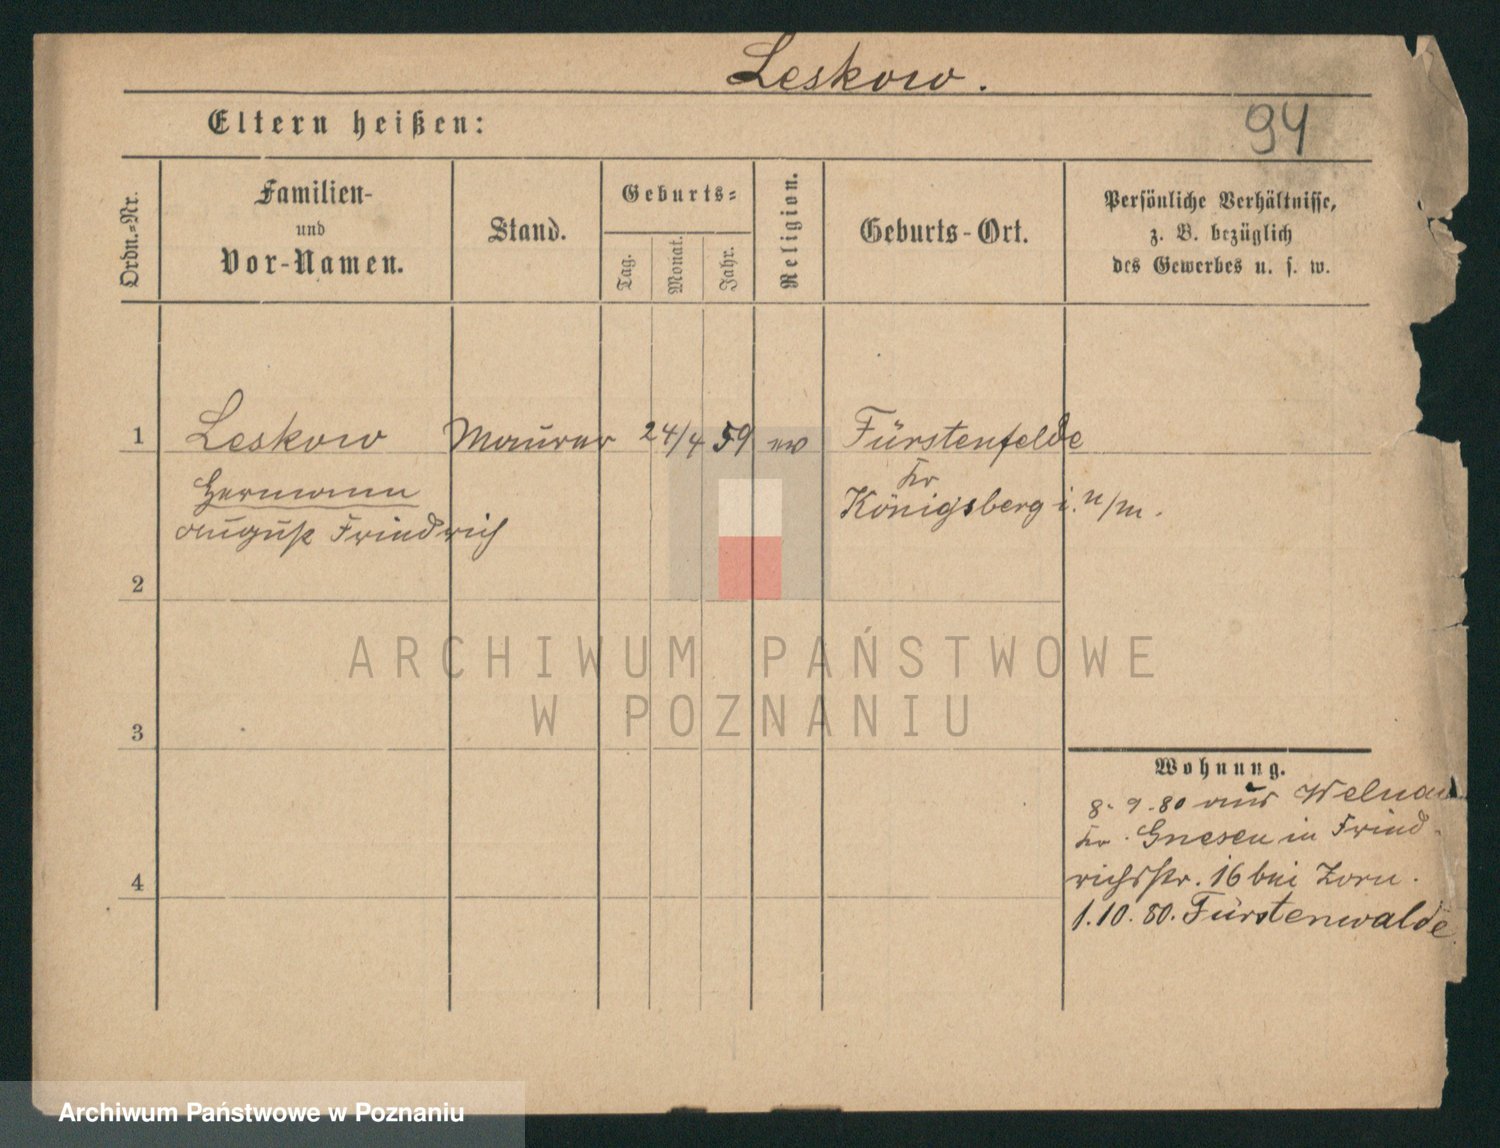 Leskow.
Eltern heißen:
94
Ordn.=Nr.
Familien-
und
Vor-Namen.
Stand.
Geburts=
Tag.
Monat.
Jahr.
Religion.
Geburts-Ort.
Persönliche Verhältnisse,
z. B. bezüglich
des Gewerbes u. s. w.
1 Leskow Maurer 24/4 59 ev Fürstenfelde
Hermann Kr
August Friedrich Königsberg i. n/m.
2
ARCHIWUM PAŃSTWOWE
W POZNANIU
3
Wohnung.
8. 9. 80 aus Welnau
Kr. Gnesen in Fried-
richsstr. 16 bei Zorn.
4
1.10.80. Fürstenwalde.
Archiwum Państwowe w Poznaniu